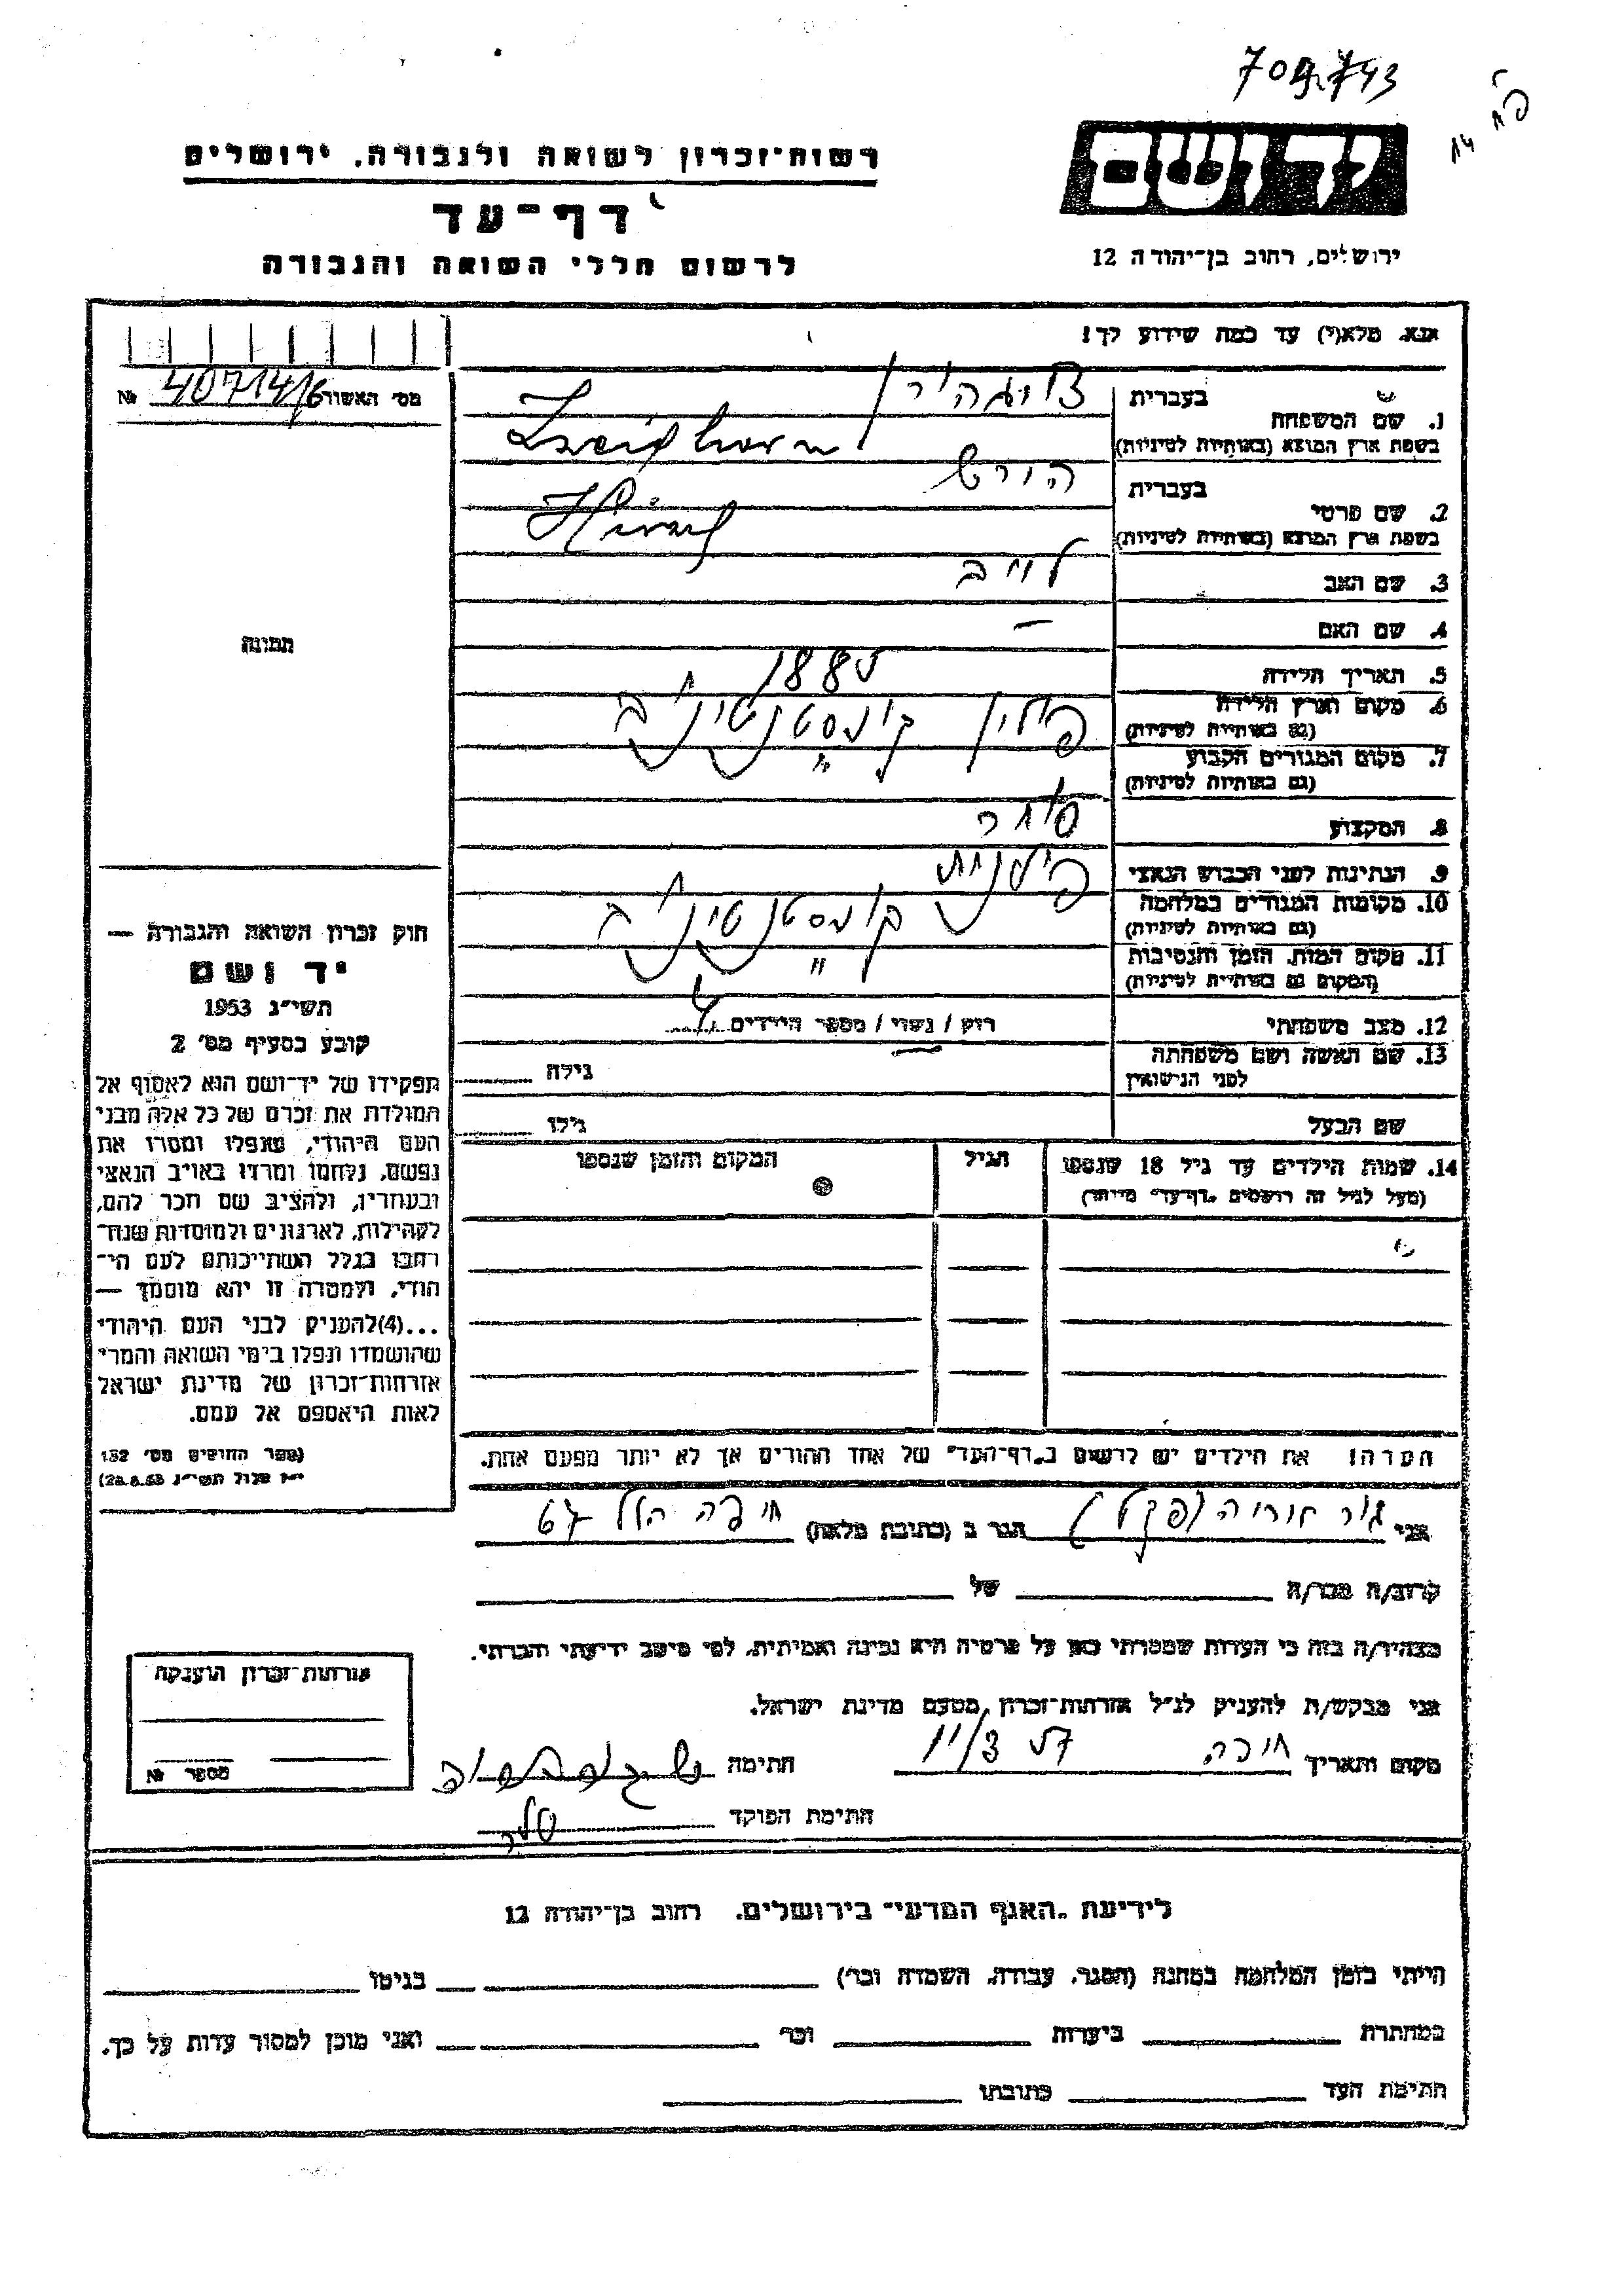 709.743
רשות־זכרון לשואה ולגבורה, ירושלים
דף־עד
לרשום חללי השואה והגבורה
יד ושם
ירושלים, רחוב בן־יהודה 12
אנא, מלא(י) עד כמה שידוע לך!
מס׳ האשור 40714/6 №
1. שם המשפחה
בעברית
בשפת ארץ המוצא (באותיות לטיניות)
2. שם פרטי
בעברית הירש
בשפת ארץ המוצא (באותיות לטיניות) Hirsch
3. שם האב לייב
4. שם האם –
5. תאריך הלידה 1885
6. מקום וארץ הלידה פולין קונסטנטינוב
(גם באותיות לטיניות)
7. מקום המגורים הקבוע "
(גם באותיות לטיניות)
8. המקצוע סוחר
9. הנתינות לפני הכבוש הנאצי פולנית
10. מקומות המגורים במלחמה קונסטנטינוב
(גם באותיות לטיניות)
11. מקום המות, הזמן והנסיבות "
(המקום גם באותיות לטיניות)
12. מצב משפחתי רוק / נשוי / מספר הילדים 4
13. שם האשה ושם משפחתה
לפני הנישואין
גילה
שם הבעל גילו
14. שמות הילדים עד גיל 18 שנספו
(מעל לגיל זה רושמים „דף־עד״ מיוחד)
הגיל
המקום והזמן שנספו
תמונה
חוק זכרון השואה והגבורה —
יד ושם
תשי״ג 1953
קובע בסעיף מס׳ 2
תפקידו של יד־ושם הוא לאסוף אל
המולדת את זכרם של כל אלה מבני
העם היהודי, שנפלו ומסרו את
נפשם, נלחמו ומרדו באויב הנאצי
ובעוזריו, ולהציב שם וזכר להם,
לקהילות, לארגונים ולמוסדות שנח־
רבו בגלל השתייכותם לעם הי־
הודי, ולמטרה זו יהא מוסמך —
...(4)להעניק לבני העם היהודי
שהושמדו ונפלו בימי השואה והמרי
אזרחות־זכרון של מדינת ישראל
לאות היאספם אל עמם.
(ספר החוקים מס׳ 132
י״ז אלול תשי״ג 28.8.53)
הערה! את הילדים יש לרשום ב„דף־העד״ של אחד ההורים אך לא יותר מפעם אחת.
אני הגר ב (כתובת מלאה) חיפה הלל
קרוב/ה מכר/ה של
מצהיר/ה בזה כי העדות שמסרתי כאן על פרטיה היא נכונה ואמיתית, לפי מיטב ידיעתי והכרתי.
אני מבקש/ת להעניק לנ״ל אזרחות־זכרון מטעם מדינת ישראל.
מקום ותאריך חיפה חתימה
חתימת הפוקד
אזרחות־זכרון הוענקה
מספר №
לידיעת „האגף המדעי״ בירושלים, רחוב בן־יהודה 12
הייתי בזמן המלחמה במחנה (הסגר, עבודה, השמדה וכו׳) בגיטו
במחתרת ביערות וכו׳ ואני מוכן למסור עדות על כך.
חתימת העד כתובתו